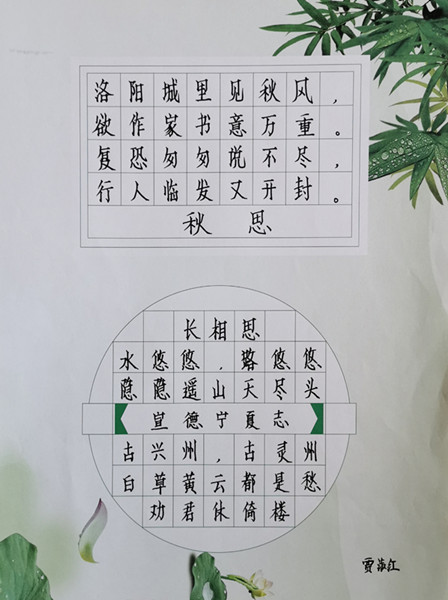 洛阳城里见秋风，
欲作家书意万重。
复恐匆匆说不尽，
行人临发又开封。
秋思
长相思
水悠悠，路悠悠
隐隐遥山天尽头
宣德宁夏志
古兴州，古灵州
白草黄云都是愁
劝君休倚楼